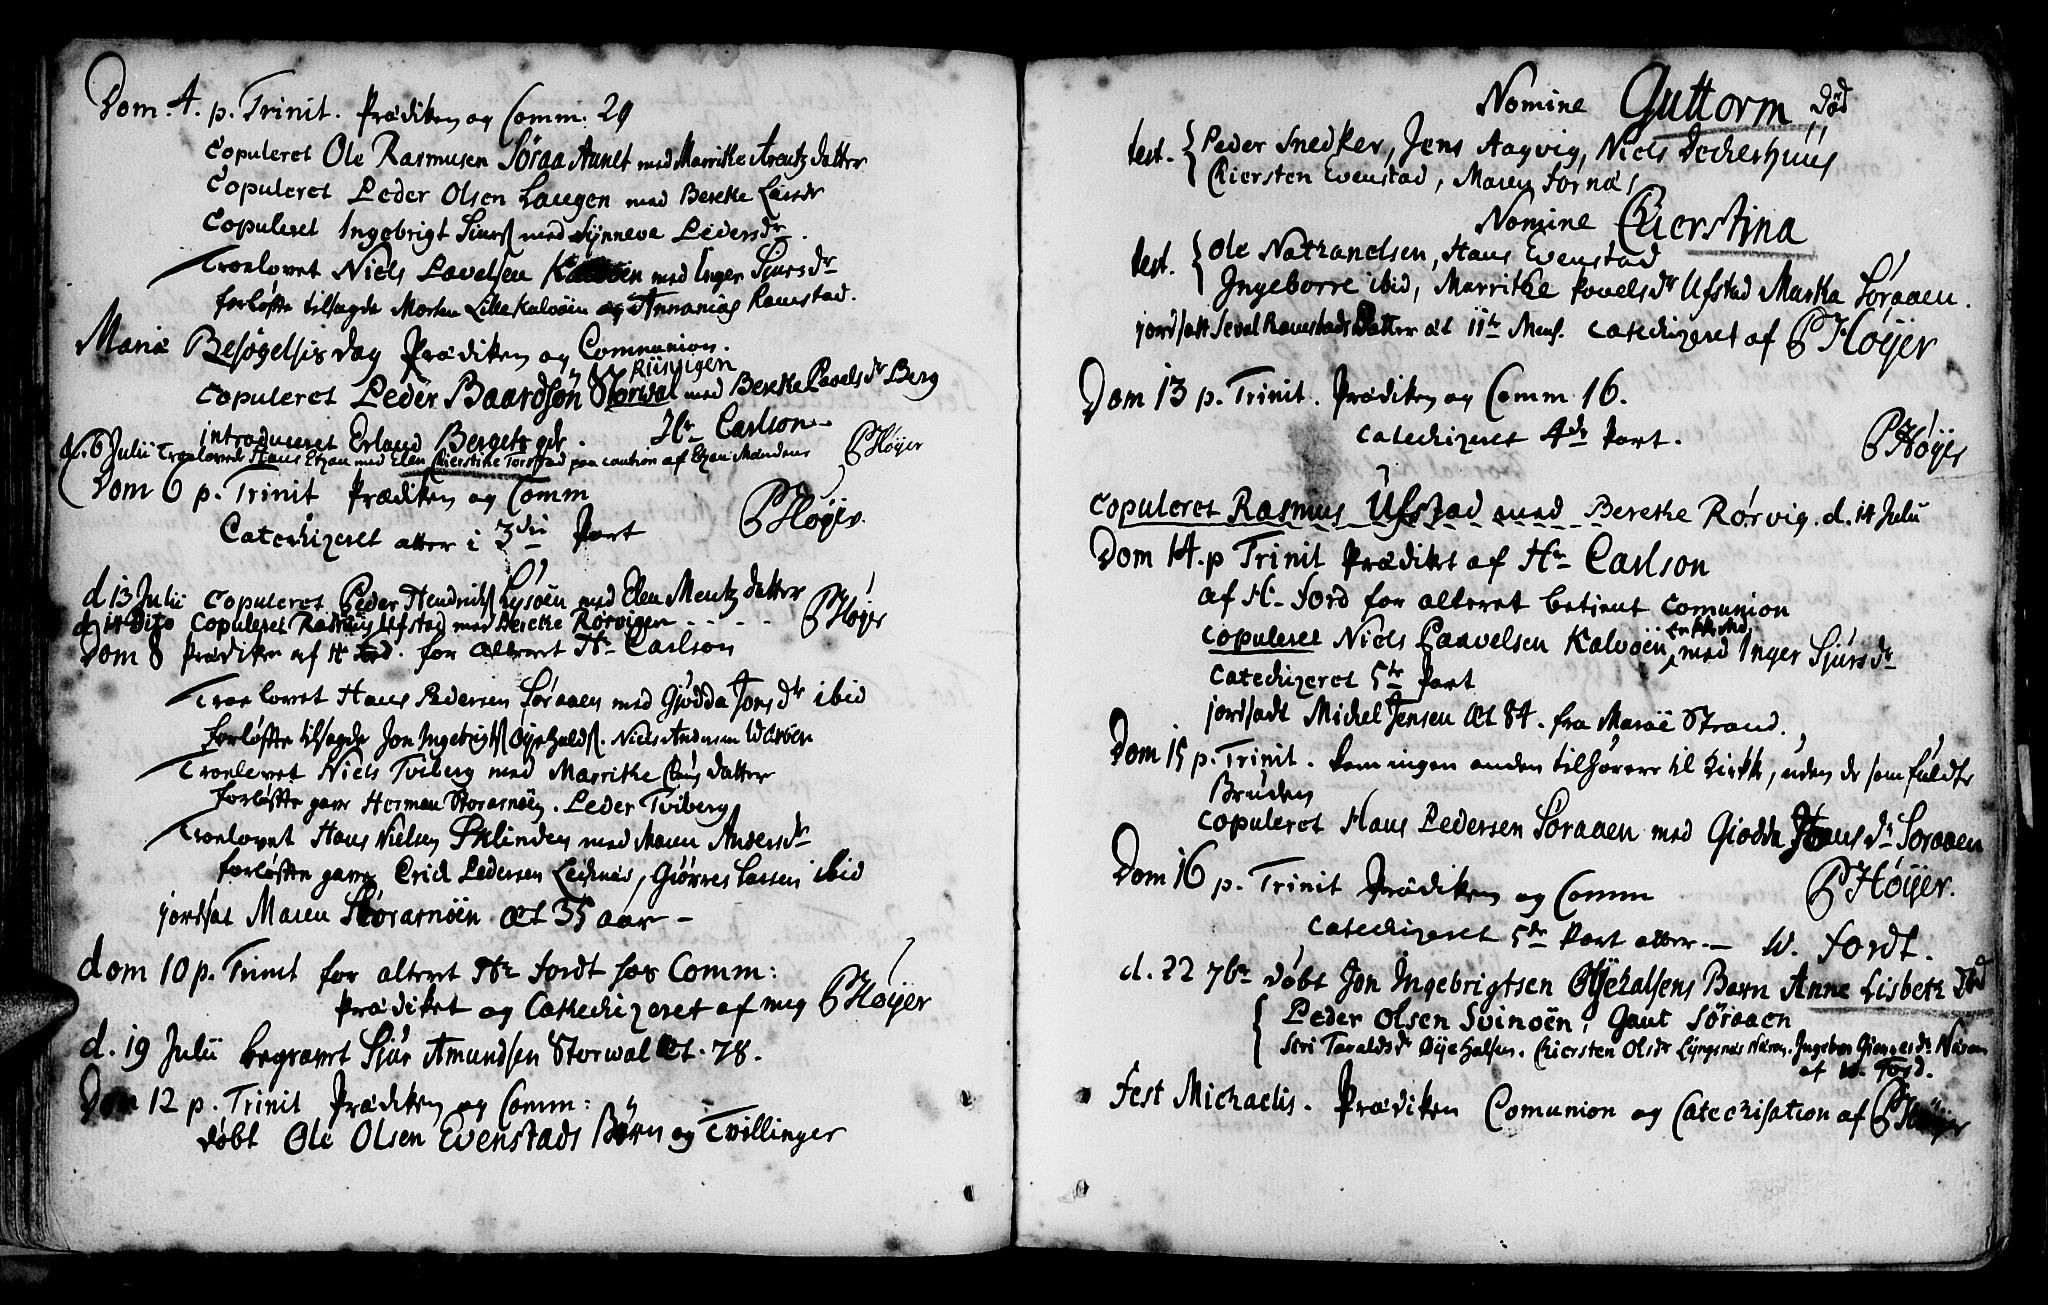 Dom. 4. p. Trinit. Prædiken og Comm: 29
Copuleret Ole Rasmusen Søraa Annet med Marritke Arentz datter
Copuleret Peder Olsen Laugen med Bereke Larsdr
Copuleret Ingebrigt Siurs med Synneve Pedersdr.
Troelovet Niels Pavelsen Kalvøen med Inger Sjursdr
forløfte tilsagde Morten Lille Kalvøen og Annanias Ramstad.
Mariæ Besøgelsis Dag Prædiken og Communion.
Riisvigen
Copuleret Peder Baardsøn Storwal med Bereke Pavelsdr Berg
introduceret Erland Bergets qde. Hr Carlson
d. 6 Julii Troelovede Hans Etzan med Elen Kierstine Torstad paa caution af Etzan Mandens PHøyer
Dom 6 p. Trinit Prædiken og Comm
Catechizeret atter i 3die Part PHøyer.
d 13 Julii Copuleret Peder Hendrichs Lysøen med Elen Mentz datter PHøyer
d 14 Dito Copuleret Rasmus Ufstad med Bereke Rørvigen
Dom 8 Prædiken af Hr Ford. for Alteret Hr Carlson
Troelovet Hans Pedersen Søraaen med Giødda Jonsdr ibid
forløfte tilsagde Jon Ingebrigts Øyehals. Niels Andersen Warøen
Troelovet Niels Tviberg med Marritke Clausdatter
forløfte gav Herman Storasnøen. Peder Tviberg
Troelovet Hans Nielsen Sklinden med Maren Andersdr
forløfte gave Erich Pedersen Lecknæs, Giørres Larsen ibid
jordsat Maren Storasnøen Æt 35 aar –
dom 10 p. Trinit for alteret Hr Fordt hos Comm:
Prædiket og Catechizeret af mig PHøyer
d. 19 Julii begravet Sjur Amundsen Storwal Æt. 78.
Dom 12 p. Trinit Prædiken og Comm:
døbt Ole Olsen Evenstads Børn og Tvillinger
Nomine Guttorm Død
test. Peder Snedker, Jens Aagvig, Niels Deckerhuus
Chiersten Evenstad, Maren Fornæs
Nomine Chierstina
test. Ole Nathanelsen, Hans Evenstad
Ingeborre ibid, Marritke Povelsdr Ufstad Marka Søraaen.
jordsatt Sevel Ramstads Datter æt 11te Mens. Catechizeret af PHøyer
Dom 13 p. Trinit. Prædiken og Comm 16.
Catechizeret 4de Part. PHøyer
Copuleret Rasmus Ufstad med Bereke Rørvig. d. 14 Julii
Dom 14. p Trinit Prædiket af Hr Carlson
af Hr Ford for alteret betient Comunion
Copuleret Niels Paavelsen Kalvøen Enkemd med Inger Sjursdr
Catechizeret 5te Part
jordsadt Michel Jensen Æt 84. fra Marøe Strand.
Dom 15 p. Trinit. kom ingen anden tilhører til Kirke, uden de som fuldte
Bruden
Copuleret Hans Pedersen Søraaen med Giodda Jonsdr Søraaen
Dom 16 p. Trinit Prædiken og Comm PHøyer.
Catechizeret 5te Part atter. – W. Fordt.
d. 22 7br Døbt Jon Ingebrigtsen Øyehalsens Barn Anne Lisbeth Død
Peder Olsen Svinøen, Gaut Søraaen
Seri Taraldsdr Øyehalsen. Chiersten Olsdr Lyngsnes Næren. Ingebor Giørresdr Næren
af W. Ford.
Fest Michaelis. Prædiken Comunion og Catechisation af PHøyer